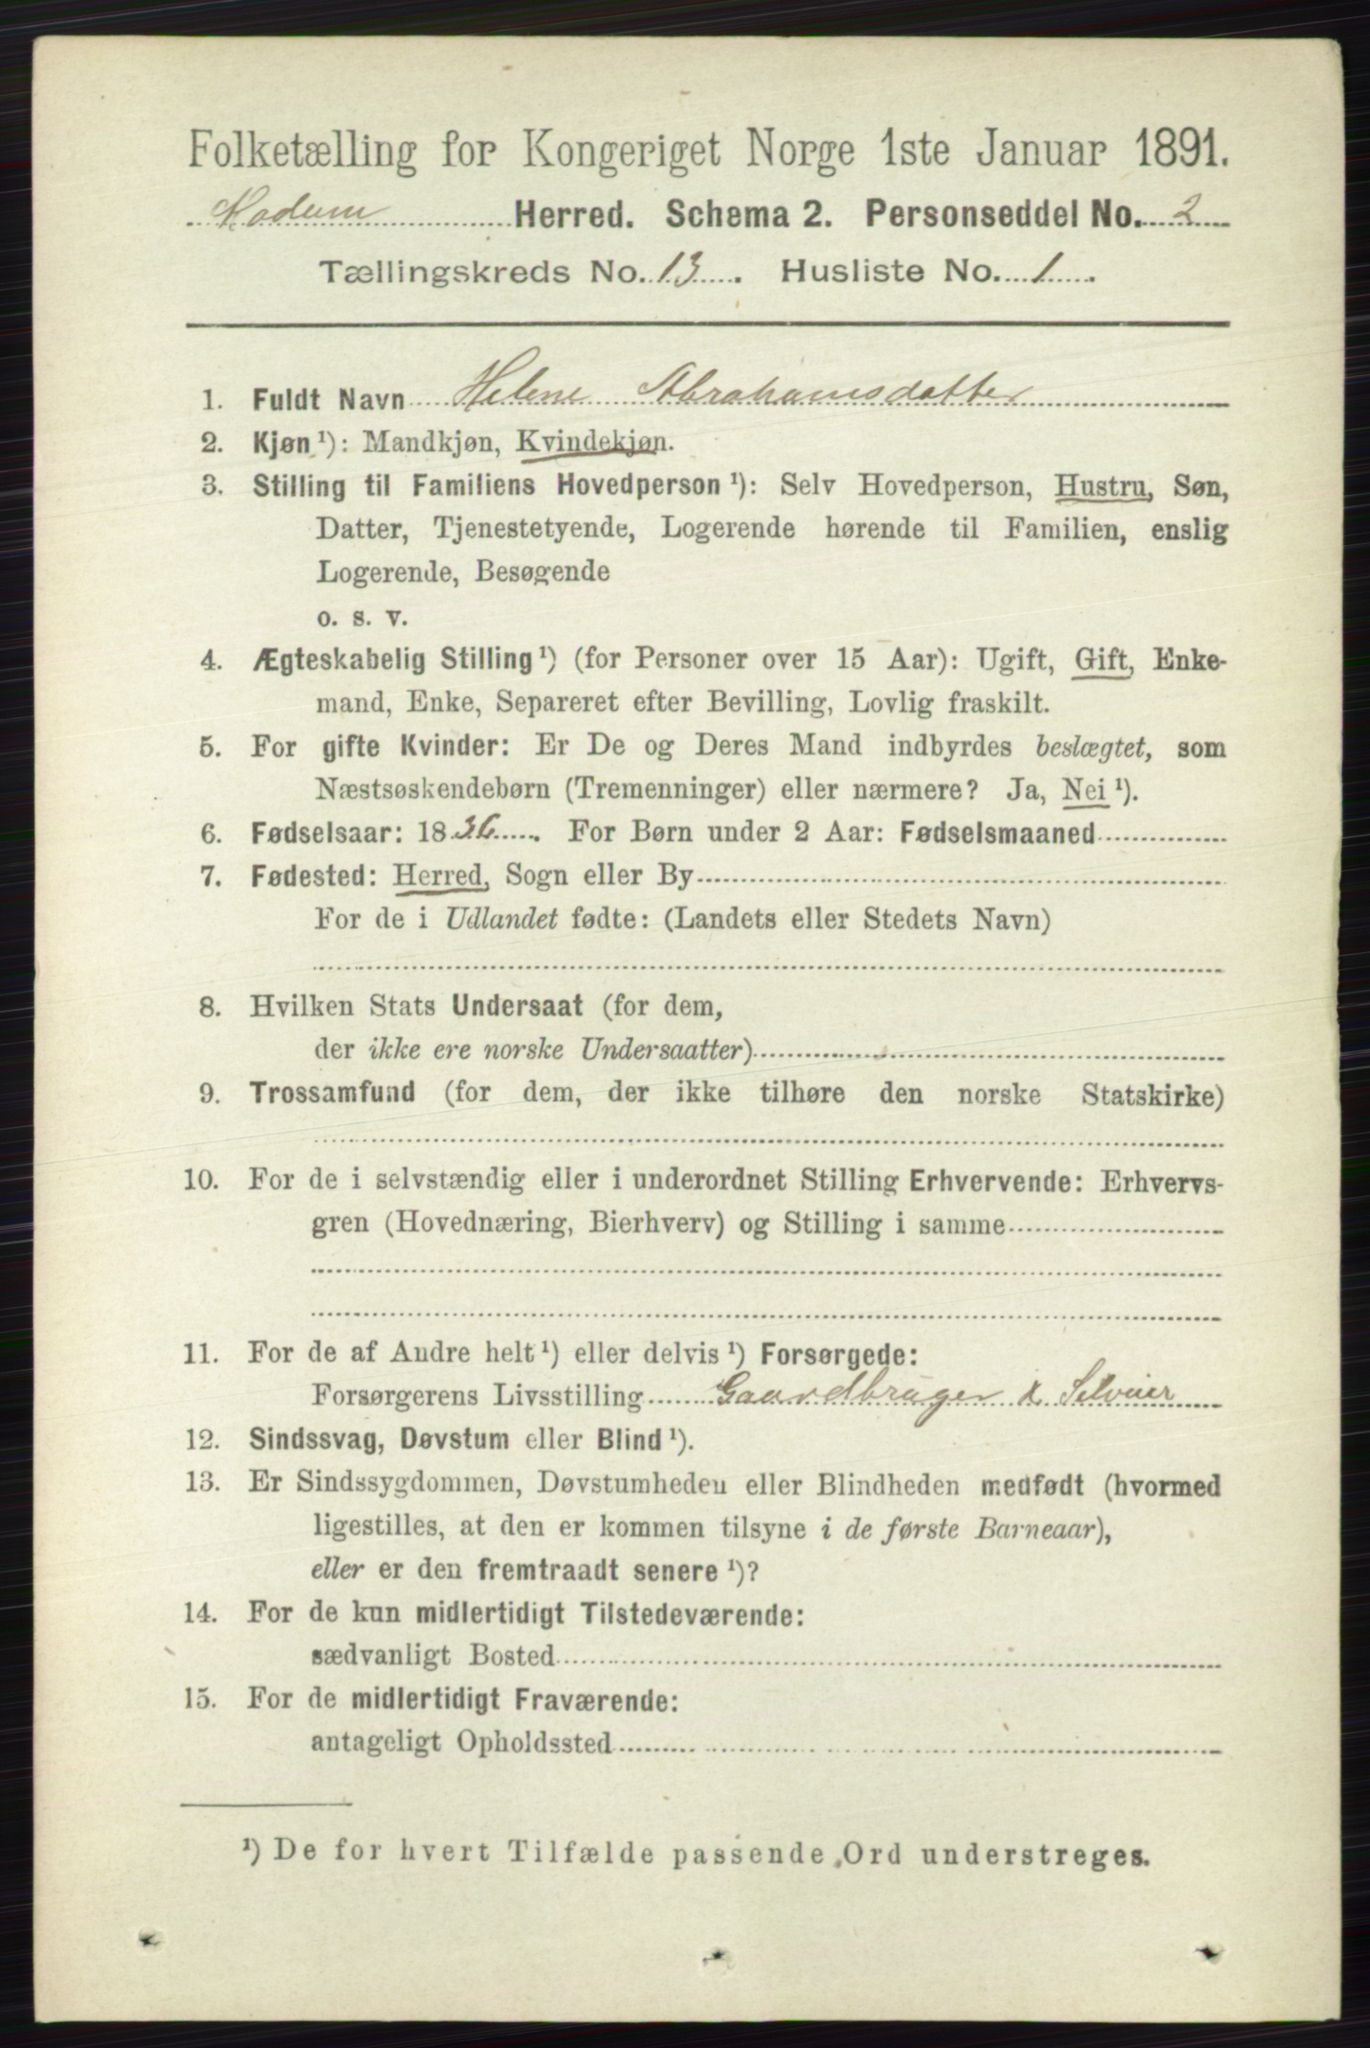 Folketælling for Kongeriget Norge 1ste Januar 1891.
Modum Herred. Schema 2. Personseddel No. 2
Tællingskreds No. 13. Husliste No. 1.
1. Fuldt Navn Helene Abrahamsdatter
2. Kjøn¹): Mandkjøn, Kvindekjøn.
3. Stilling til Familiens Hovedperson¹): Selv Hovedperson, Hustru, Søn,
Datter, Tjenestetyende, Logerende hørende til Familien, enslig
Logerende, Besøgende
o. s. v.
4. Ægteskabelig Stilling¹) (for Personer over 15 Aar): Ugift, Gift, Enke-
mand, Enke, Separeret efter Bevilling, Lovlig fraskilt.
5. For gifte Kvinder: Er De og Deres Mand indbyrdes beslægtet, som
Næstsøskendebørn (Tremenninger) eller nærmere? Ja, Nei¹).
6. Fødselsaar: 1836. For Børn under 2 Aar: Fødselsmaaned
7. Fødested: Herred, Sogn eller By
For de i Udlandet fødte: (Landets eller Stedets Navn)
8. Hvilken Stats Undersaat (for dem,
der ikke ere norske Undersaatter)
9. Trossamfund (for dem, der ikke tilhøre den norske Statskirke)
10. For de i selvstændig eller i underordnet Stilling Erhvervende: Erhvervs-
gren (Hovednæring, Bierhverv) og Stilling i samme
11. For de af Andre helt¹) eller delvis¹) Forsørgede:
Forsørgerens Livsstilling Gaardbruger & Selveier
12. Sindssvag, Døvstum eller Blind¹).
13. Er Sindssygdommen, Døvstumheden eller Blindheden medfødt (hvormed
ligestilles, at den er kommen tilsyne i de første Barneaar),
eller er den fremtraadt senere¹)?
14. For de kun midlertidigt Tilstedeværende:
sædvanligt Bosted
15. For de midlertidigt Fraværende:
antageligt Opholdssted
¹) De for hvert Tilfælde passende Ord understreges.